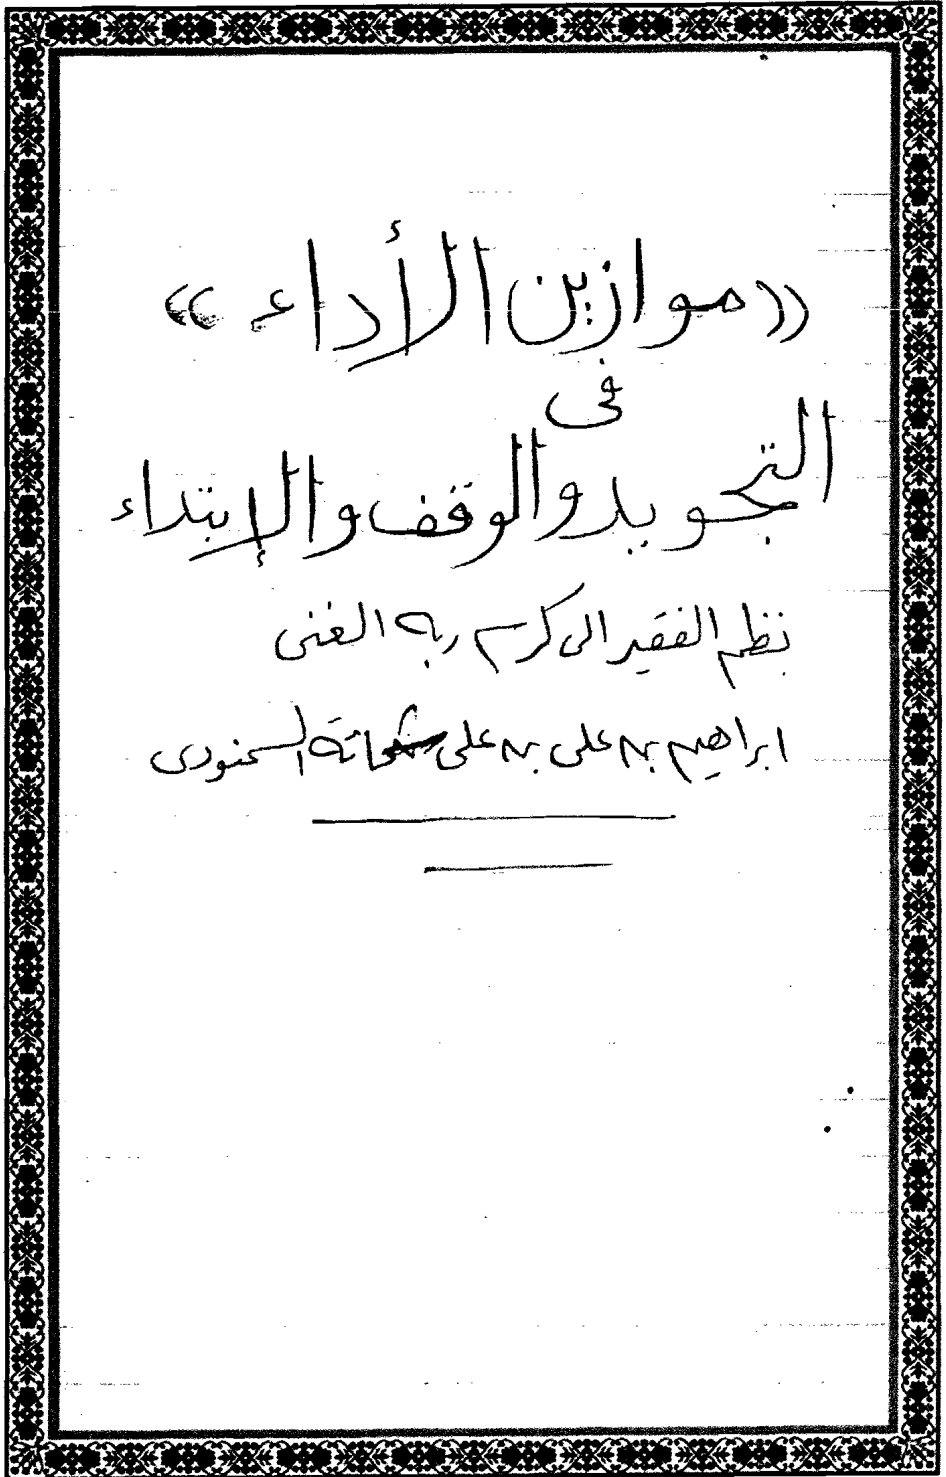 «موازين الأداء»
فى
التجويد والوقف والإبتداء
نظم الفقير الى كرم ربه الغنى
ابراهيم بن على بن على شحاته السمنودى